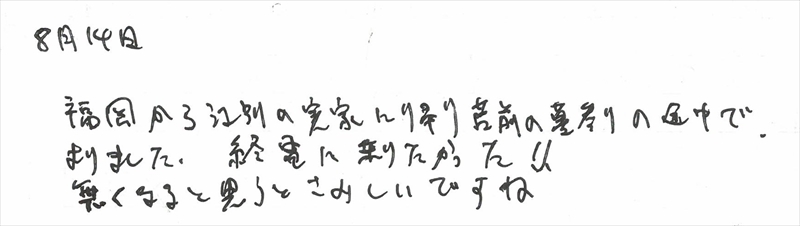 8月14日
福岡から江別の実家に帰り苫前の墓参りの途中で、
ました。終電に乗りたかった!!
無くなると思うとさみしいですね